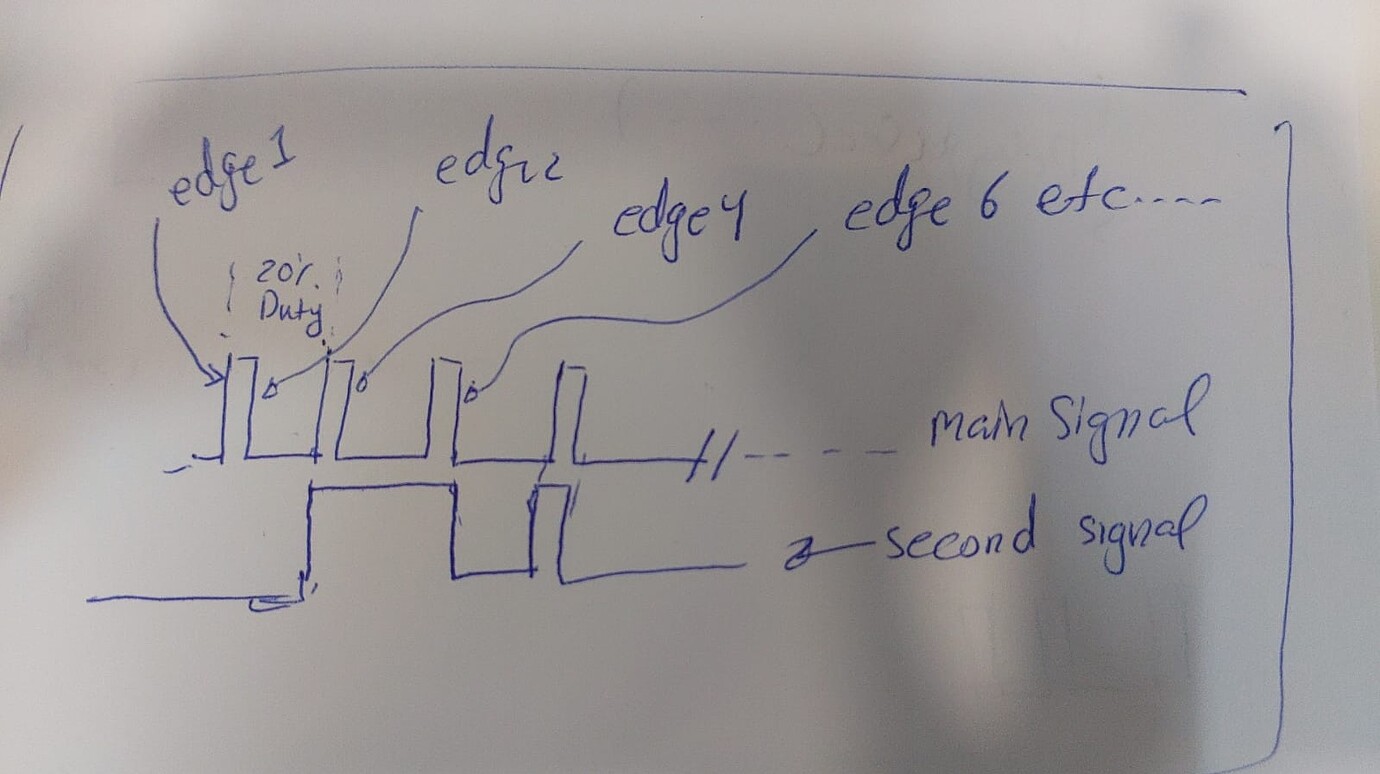 edge 1
edge 2
edge 4
edge 6 etc....
20%
Duty
main Signal
second signal